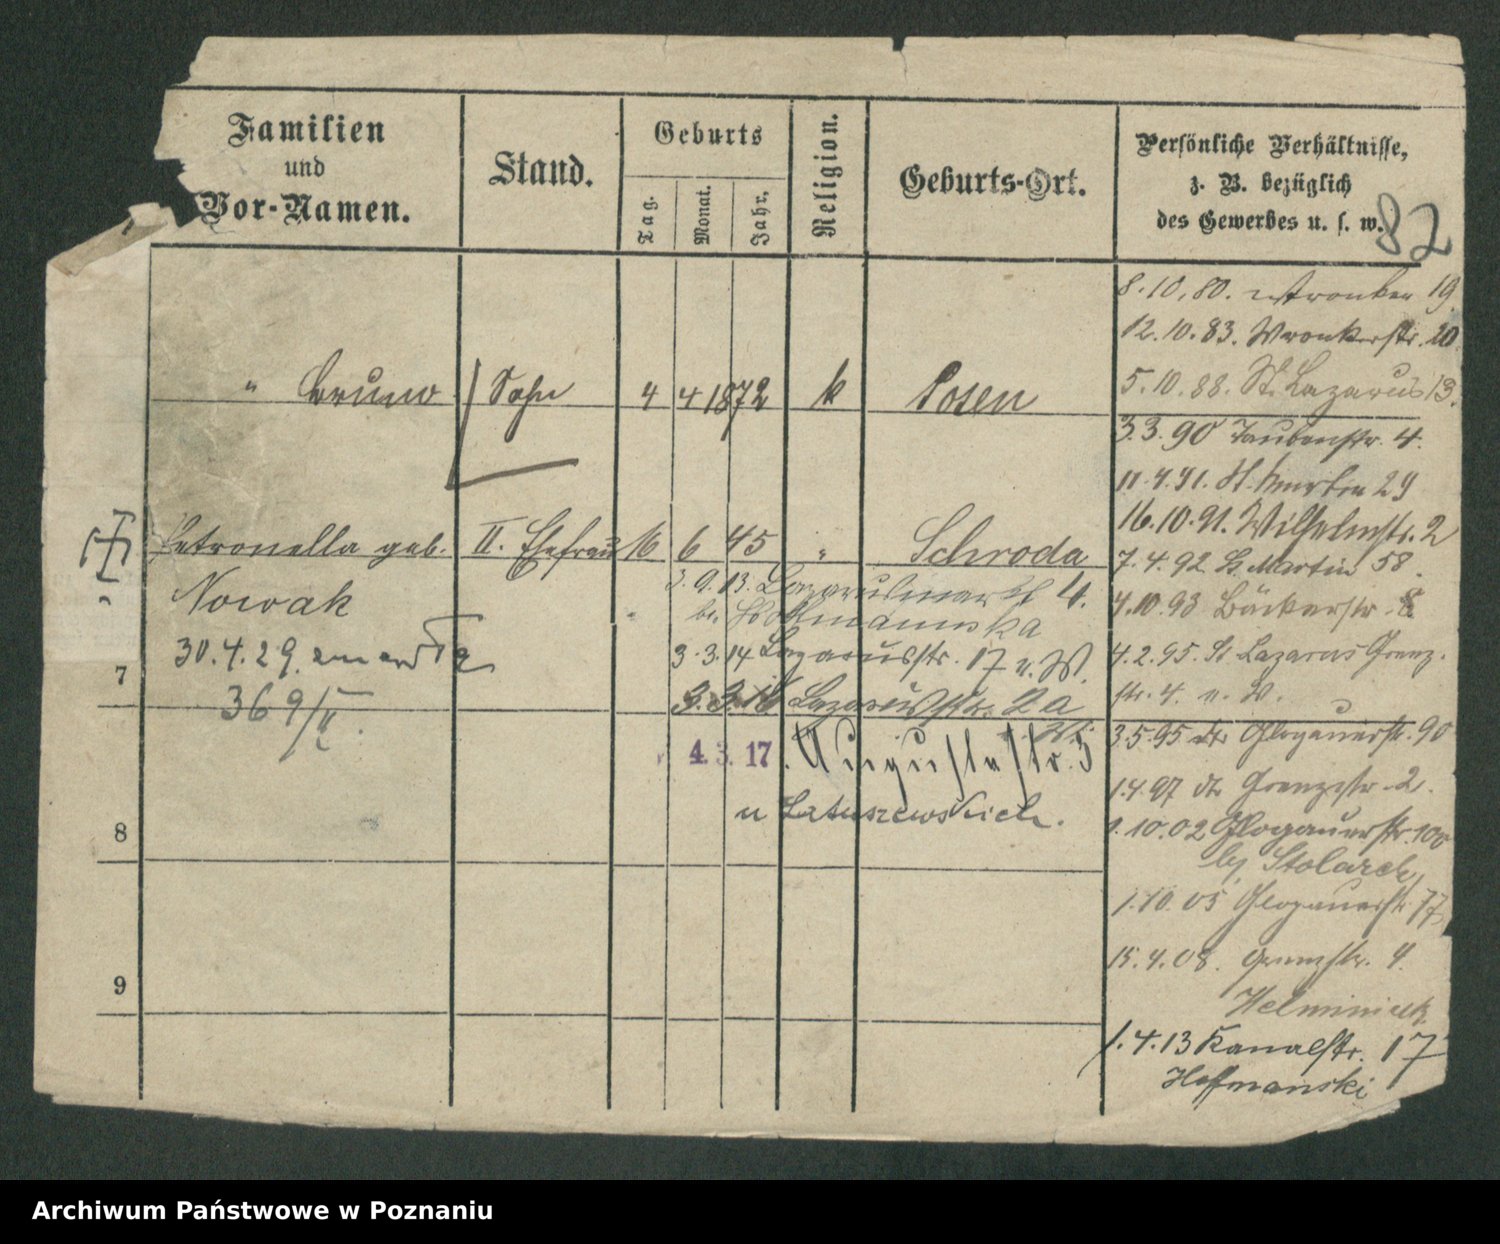 Familien
und
Vor-Namen.
Stand.
Geburts
Tag.
Monat.
Jahr.
Religion.
Geburts-Ort.
Persönliche Verhältnisse,
z. B. bezüglich
des Gewerbes u. s. w.
82
" Bruno Sohn 4 4 1872 k Posen
Petronella geb. II. Ehefrau 16 6 45 " Schroda
Nowak
30.4.29.
369/II
7
8
9
3.9.13. Lazarusmarkt 4.
3.3.14 Lazarusstr. 17 u. W.
3.3.16 Lazarusstr. 2a
4.3.17. Augustastr. 3
u Latuszewskich.
8.10.80. Wronker 19
12.10.83. Wronkerstr. 20.
5.10.88. St. Lazarus 13.
3.3.90 Taubenstr. 4.
11.4.91. St. Martin 29
16.10.91. Wilhelmstr. 2
7.4.92 St. Martin 58.
4.10.93 Bäckerstr. 8
4.2.95. St Lazarus Grenz-
str. 4. u. W.
3.5.95 dto Glogauerstr. 90
1.4.97 dto Grenzstr. 2.
1.10.02 Glogauerstr. 100
by Stolarek,
1.10.05 Glogauerstr 77
15.4.08. Grenzstr. 4.
Helminiak
1.4.13 Kanalstr. 17
Hoffmanski
Archiwum Państwowe w Poznaniu